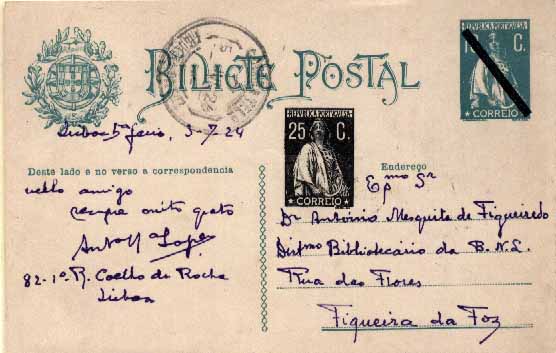 BILHETE POSTAL
REPUBLICA PORTUGUESA
C.
CORREIO
3-7-24
REPUBLICA PORTUGUESA
25 C.
CORREIO
Deste lado e no verso a correspondencia
velho amigo
grato
Lopes
82-1º R. Coelho da Rocha
Lisboa
Endereço
Exmo Sr
Dr António Mesquita de Figueiredo
Bibliotecario da B.N.L.
Rua das Flores
Figueira da Foz